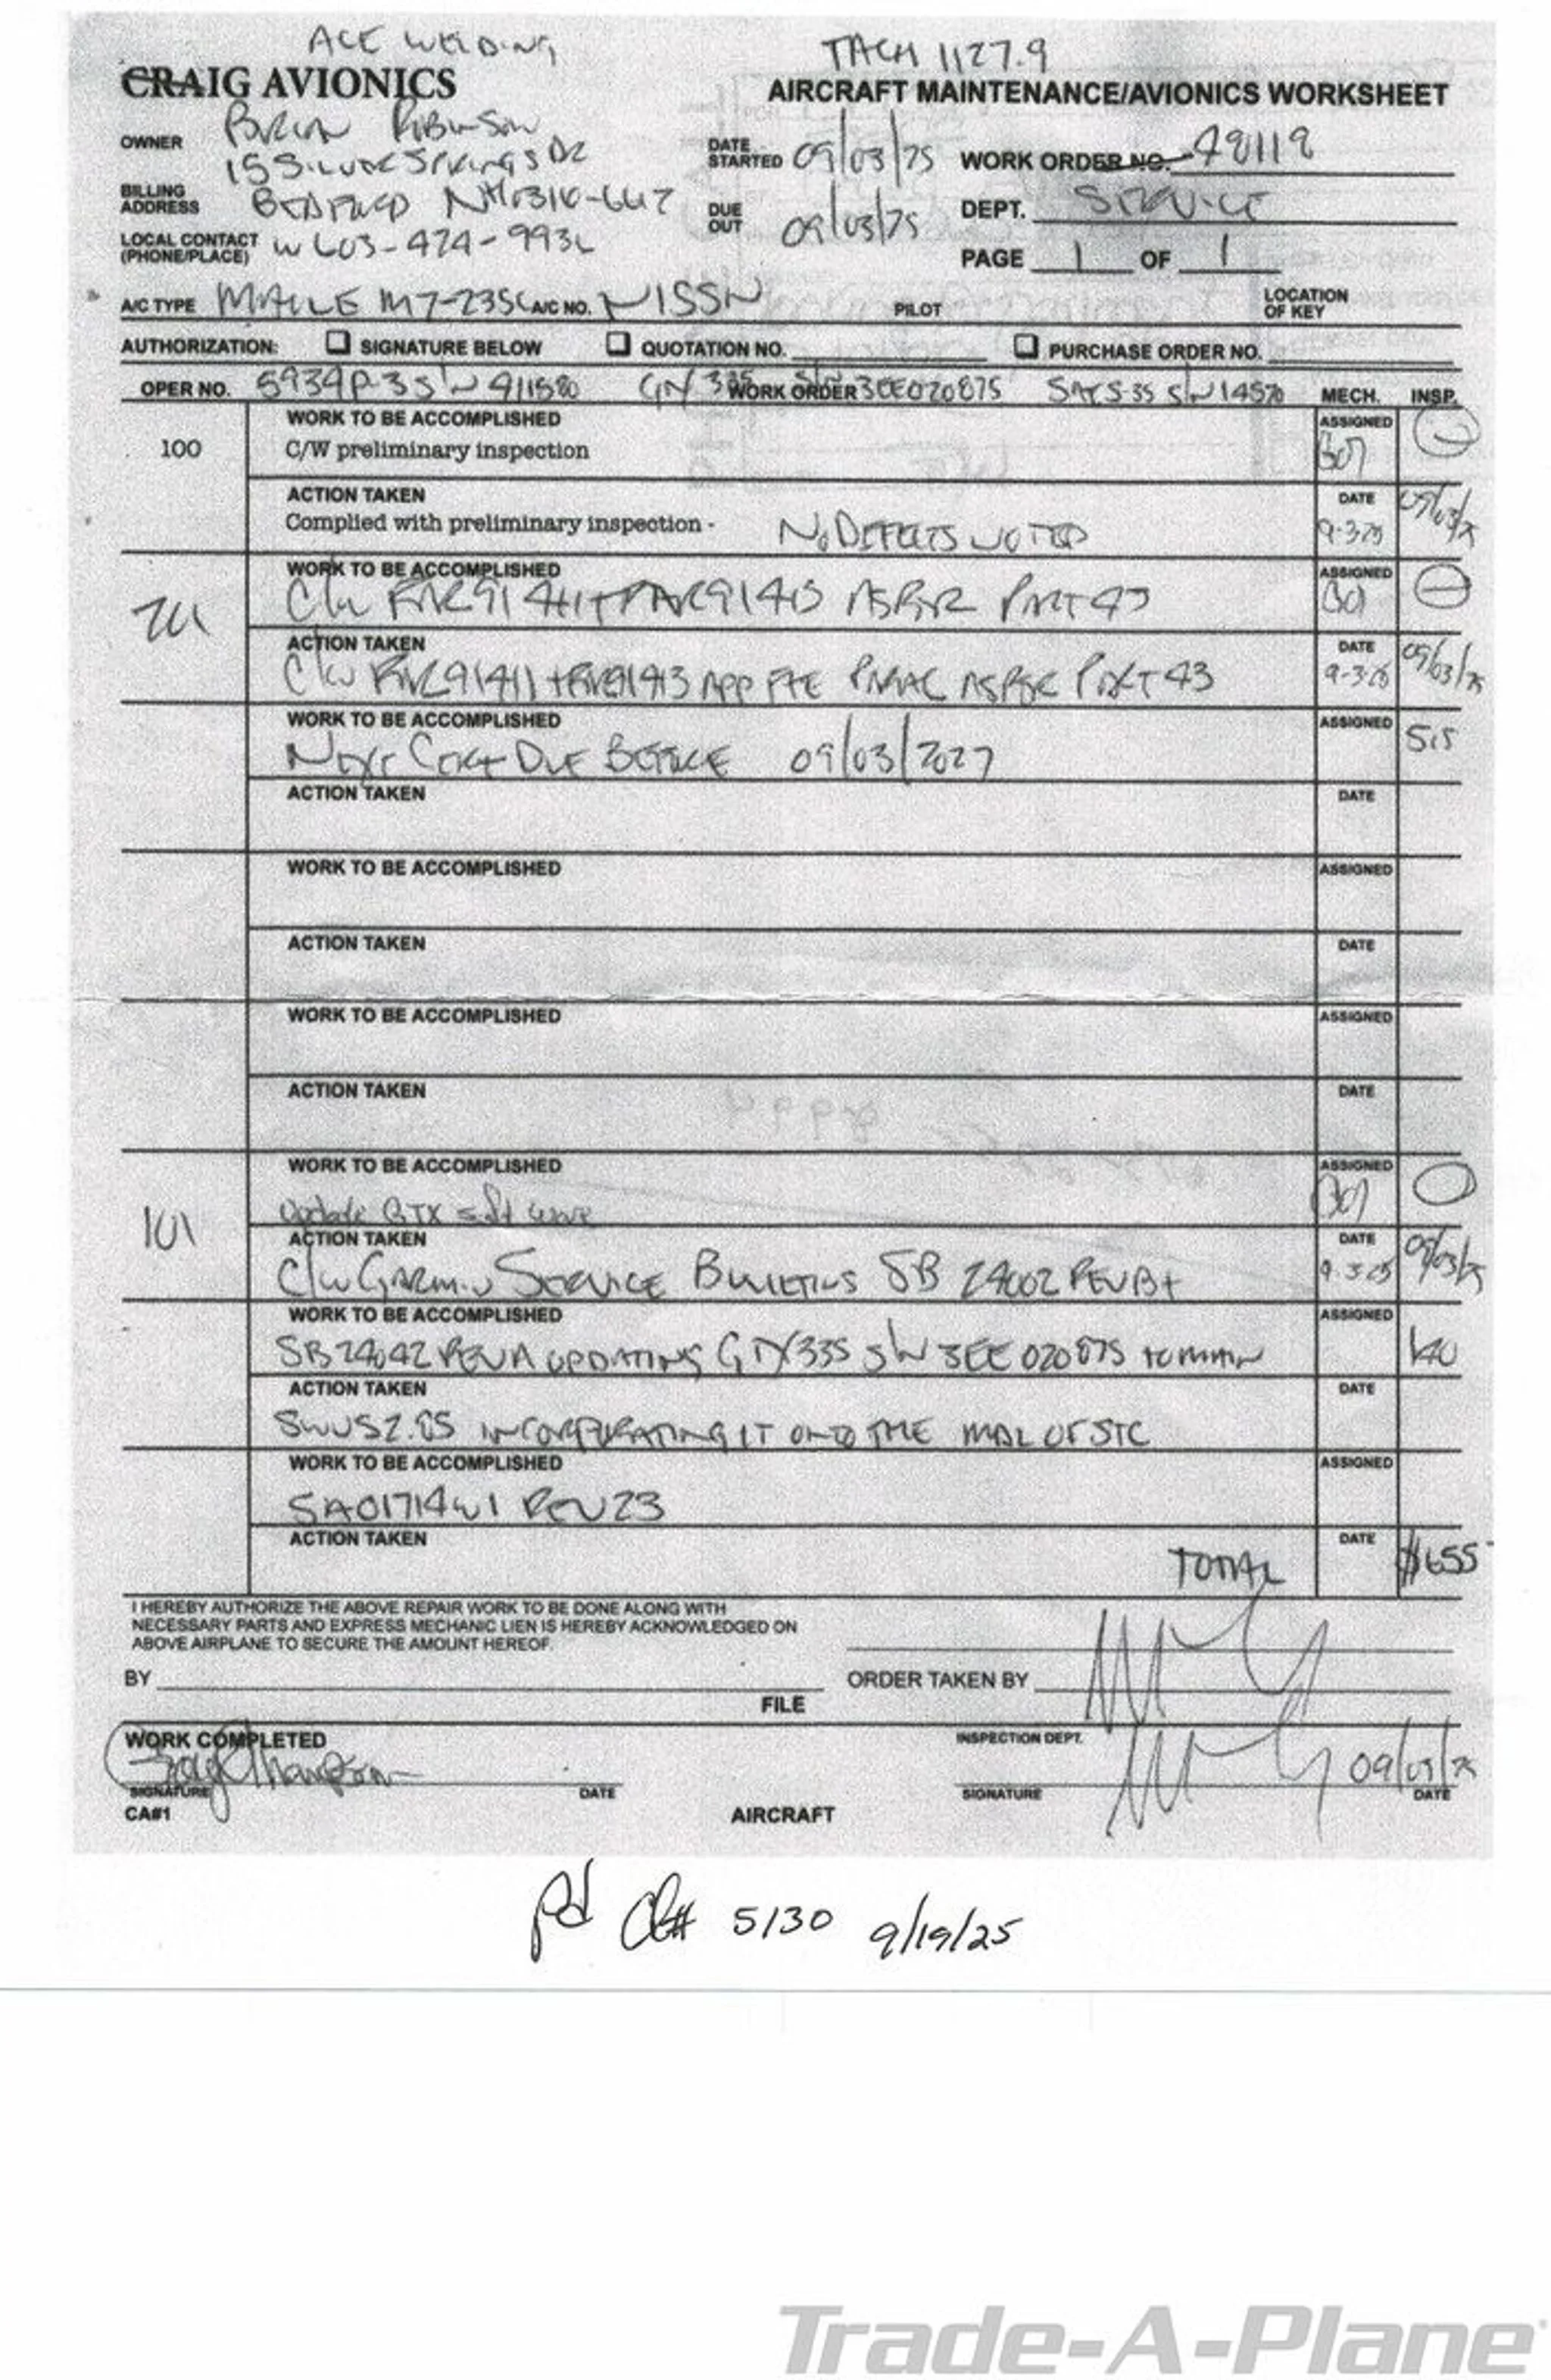 ACE WELDING
TACH 1127.9
CRAIG AVIONICS
AIRCRAFT MAINTENANCE/AVIONICS WORKSHEET
OWNER Brian Robinson
DATE STARTED 09/03/25 WORK ORDER NO. 48118
BILLING ADDRESS BEDFORD NH
DUE OUT 09/03/25 DEPT. SERVICE
LOCAL CONTACT (PHONE/PLACE) W 603-424-
PAGE 1 OF 1
A/C TYPE MAULE M7-235C A/C NO. N15SN PILOT LOCATION OF KEY
AUTHORIZATION: SIGNATURE BELOW QUOTATION NO. PURCHASE ORDER NO.
OPER NO. 5934P-3 S/N 9/1580 335 S/N 3EE020875 S/N 14570
WORK ORDER MECH. INSP.
WORK TO BE ACCOMPLISHED ASSIGNED
100 C/W preliminary inspection
ACTION TAKEN DATE
Complied with preliminary inspection - NO DEFECTS NOTED 9-3-25 09/03/25
WORK TO BE ACCOMPLISHED ASSIGNED
201 C/W FAR 91 411 + FAR 91 413 AS PER PART 43
ACTION TAKEN DATE
C/W FAR 91411 + FAR 91413 APP PARA C AS PER PART 43 9-3-25 09/03/25
WORK TO BE ACCOMPLISHED ASSIGNED
NEXT CERT DUE BEFORE 09/03/2027 515
ACTION TAKEN DATE
WORK TO BE ACCOMPLISHED ASSIGNED
ACTION TAKEN DATE
WORK TO BE ACCOMPLISHED ASSIGNED
ACTION TAKEN DATE
WORK TO BE ACCOMPLISHED ASSIGNED
101 Update GTX software
ACTION TAKEN DATE
C/W GARMIN SERVICE BULLETINS SB 24002 REV B + 9-3-25 09/03/25
WORK TO BE ACCOMPLISHED ASSIGNED
SB 24042 REV A UPDATING GTX335 S/N 3EE020875 TO MAIN 140
ACTION TAKEN DATE
SW VS 2.85 INCORPORATING IT ONTO THE MDL OF STC
WORK TO BE ACCOMPLISHED ASSIGNED
SA01714WI REV 23
ACTION TAKEN DATE
TOTAL $655
I HEREBY AUTHORIZE THE ABOVE REPAIR WORK TO BE DONE ALONG WITH
NECESSARY PARTS AND EXPRESS MECHANIC LIEN IS HEREBY ACKNOWLEDGED ON
ABOVE AIRPLANE TO SECURE THE AMOUNT HEREOF.
BY ORDER TAKEN BY
FILE
WORK COMPLETED INSPECTION DEPT.
09/03/25
SIGNATURE DATE SIGNATURE DATE
CA#1 AIRCRAFT
pd Ck# 5130 9/19/25
Trade-A-Plane